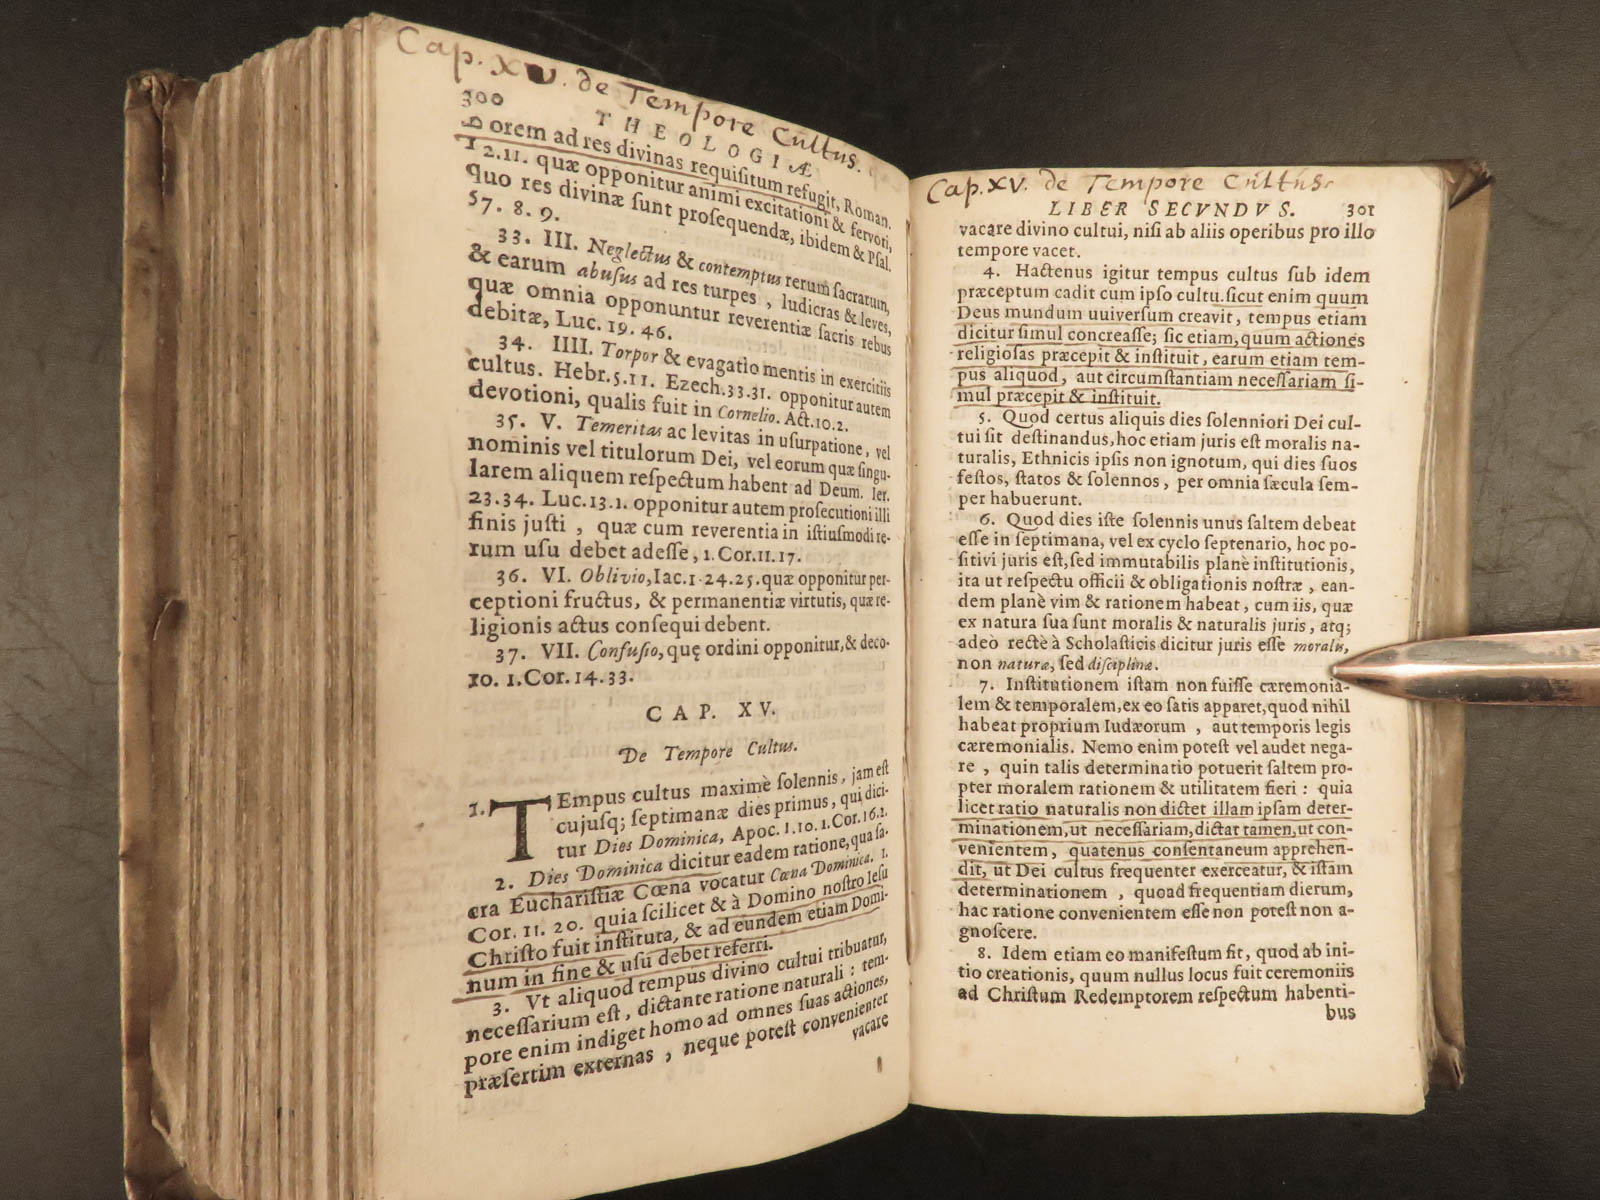 Cap. XV. de Tempore Cultus.
300
THEOLOGIÆ
orem ad res divinas requisitum refugit, Roman.
12.11. quæ opponitur animi excitationi & fervori,
quo res divinæ sunt prosequendæ, ibidem & Psal.
57. 8. 9.
33. III. Neglectus & contemptus rerum sacrarum,
& earum abusus ad res turpes, ludicras & leves,
quæ omnia opponuntur reverentiæ sacris rebus
debitæ, Luc. 19. 46.
34. IIII. Torpor & evagatio mentis in exercitiis
cultus. Hebr. 5.11. Ezech. 33.31. opponitur autem
devotioni, qualis fuit in Cornelio. Act. 10.2.
35. V. Temeritas ac levitas in usurpatione, vel
nominis vel titulorum Dei, vel eorum quæ singu-
larem aliquem respectum habent ad Deum. Ier.
23.34. Luc. 13.1. opponitur autem prosecutioni illi
finis justi, quæ cum reverentia in istiusmodi re-
rum usu debet adesse, 1. Cor. 11. 17.
36. VI. Oblivio, Iac. 1. 24. 25. quæ opponitur per-
ceptioni fructus, & permanentiæ virtutis, quæ re-
ligionis actus consequi debent.
37. VII. Confusio, quę ordini opponitur, & deco-
10. 1. Cor. 14. 33.
CAP. XV.
De Tempore Cultus.
1. TEmpus cultus maximè solennis, jam est
cujusq; septimanæ dies primus, qui dici-
tur Dies Dominica, Apoc. 1. 10. 1. Cor. 16.2.
2. Dies Dominica dicitur eadem ratione, qua sa-
cra Eucharistiæ Cœna vocatur Cœna Dominica. 1.
Cor. 11. 20. quia scilicet & à Domino nostro Iesu
Christo fuit instituta, & ad eundem etiam Domi-
num in fine & usu debet referri.
3. Vt aliquod tempus divino cultui tribuatur,
necessarium est, dictante ratione naturali: tem-
pore enim indiget homo ad omnes suas actiones,
præsertim externas, neque potest convenienter
vacare
Cap. XV. de Tempore Cultus.
LIBER SECVNDVS. 301
vacare divino cultui, nisi ab aliis operibus pro illo
tempore vacet.
4. Hactenus igitur tempus cultus sub idem
præceptum cadit cum ipso cultu. sicut enim quum
Deus mundum uuiversum creavit, tempus etiam
dicitur simul concreasse; sic etiam, quum actiones
religiosas præcepit & instituit, earum etiam tem-
pus aliquod, aut circumstantiam necessariam si-
mul præcepit & instituit.
5. Quod certus aliquis dies solenniori Dei cul-
tui sit destinandus, hoc etiam juris est moralis na-
turalis, Ethnicis ipsis non ignotum, qui dies suos
festos, statos & solennos, per omnia sæcula sem-
per habuerunt.
6. Quod dies iste solennis unus saltem debeat
esse in septimana, vel ex cyclo septenario, hoc po-
sitivi juris est, sed immutabilis planè institutionis,
ita ut respectu officii & obligationis nostræ, ean-
dem planè vim & rationem habeat, cum iis, quæ
ex natura sua sunt moralis & naturalis juris, atq;
adeò rectè à Scholasticis dicitur juris esse moralis,
non naturæ, sed disciplinæ.
7. Institutionem istam non fuisse cæremonia-
lem & temporalem, ex eo satis apparet, quod nihil
habeat proprium Iudæorum, aut temporis legis
cæremonialis. Nemo enim potest vel audet nega-
re, quin talis determinatio potuerit saltem pro-
pter moralem rationem & utilitatem fieri: quia
licet ratio naturalis non dictet illam ipsam deter-
minationem, ut necessariam, dictat tamen, ut con-
venientem, quatenus consentaneum apprehen-
dit, ut Dei cultus frequenter exerceatur, & istam
determinationem, quoad frequentiam dierum,
hac ratione convenientem esse non potest non a-
gnoscere.
8. Idem etiam eo manifestum fit, quod ab ini-
tio creationis, quum nullus locus fuit ceremoniis
ad Christum Redemptorem respectum habenti-
bus